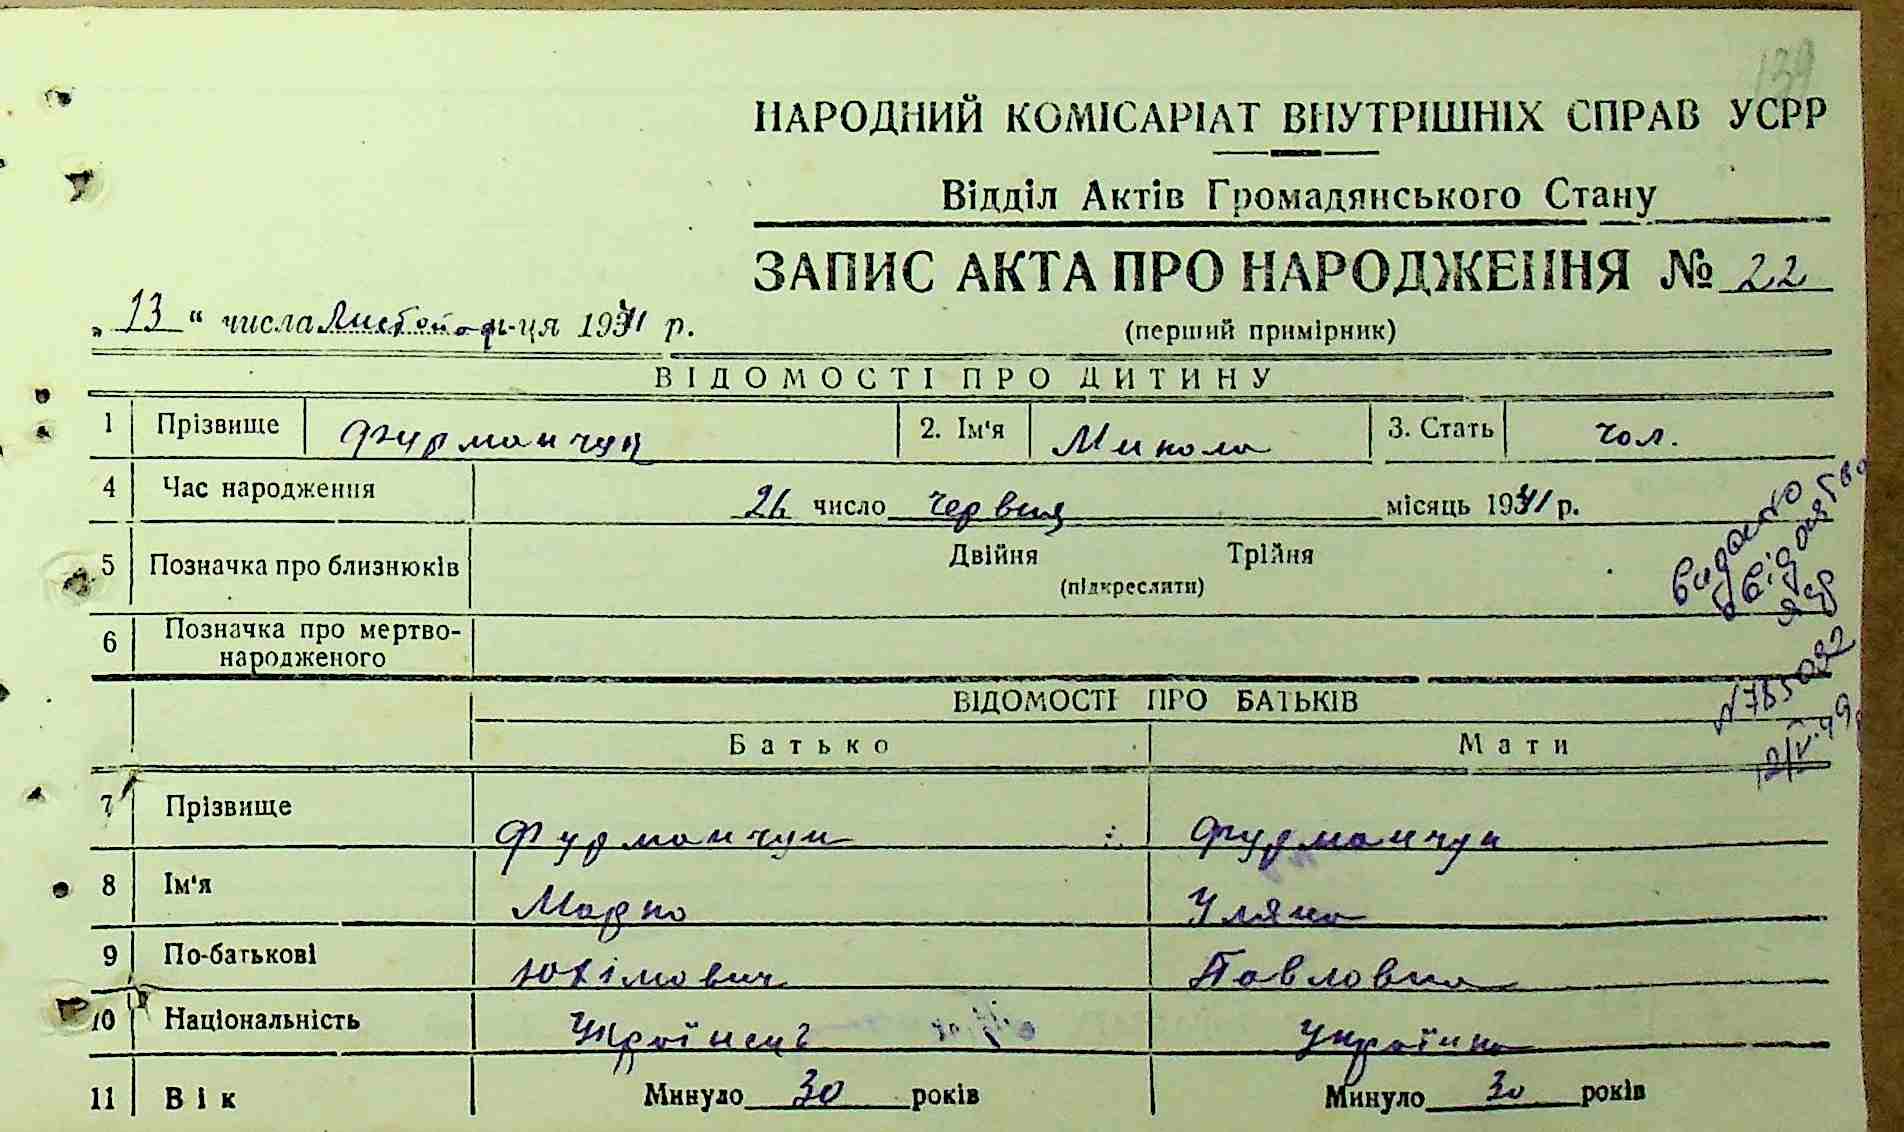 139
НАРОДНИЙ КОМІСАРІАТ ВНУТРІШНІХ СПРАВ УСРР
Відділ Актів Громадянського Стану
ЗАПИС АКТА ПРО НАРОДЖЕННЯ № 22
„ 13 “ числа Листопад м-ця 1941 р.
(перший примірник)
ВІДОМОСТІ ПРО ДИТИНУ
1 Прізвище Фурманчук 2. Ім'я Микола 3. Стать чол.
4 Час народження 26 число червня місяць 1941 р.
5 Позначка про близнюків Двійня Трійня
(підкреслити)
6 Позначка про мертво-
народженого
видано
свідоцтво
N 785092
12/V-49
ВІДОМОСТІ ПРО БАТЬКІВ
Батько Мати
7 Прізвище Фурманчук Фурманчук
8 Ім'я Марко Уляна
9 По-батькові Юхімович Павловна
10 Національність Українець Українка
11 Вік Минуло 30 років Минуло 30 років